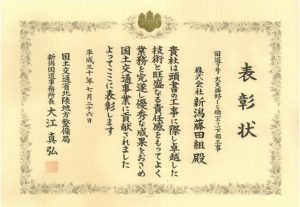 表彰状
国道7号 大夫興野
工事
株式会社 新潟藤田組 殿
貴社は頭書の工事に際し卓越した
技術と旺盛なる責任感をもってよく
業務を完遂し優秀な成果をおさめ
国土交通事業に貢献されました
よってここに表彰します
平成三十年七月二十六日
国土交通省北陸地方整備局
新潟国道事務所長 大江真弘